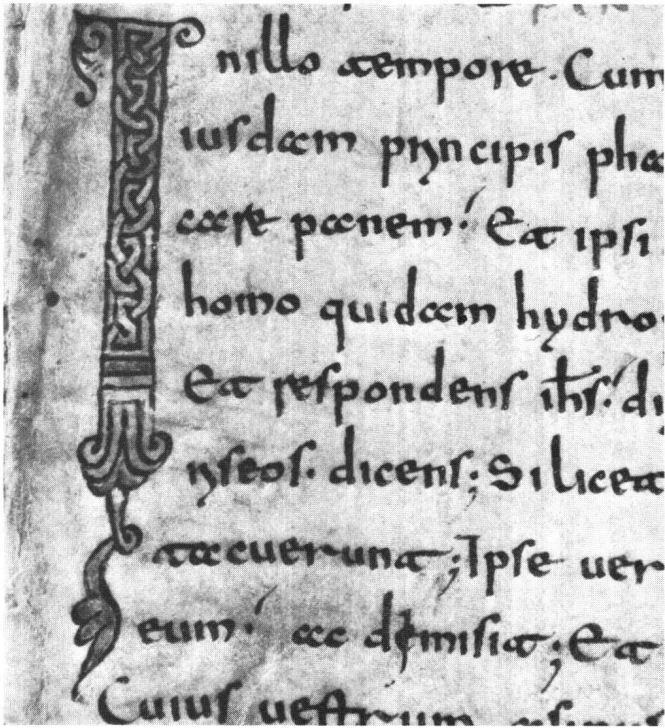 Inillo tempore. Cum
iusdam principis pha
care panem: Et ipsi
homo quidam hydro
Et respondens ihs: di
riseos. dicens; Si licet
tacuerunt; Ipse uer
eum: ac dimisit; Et
Cuius uestrum